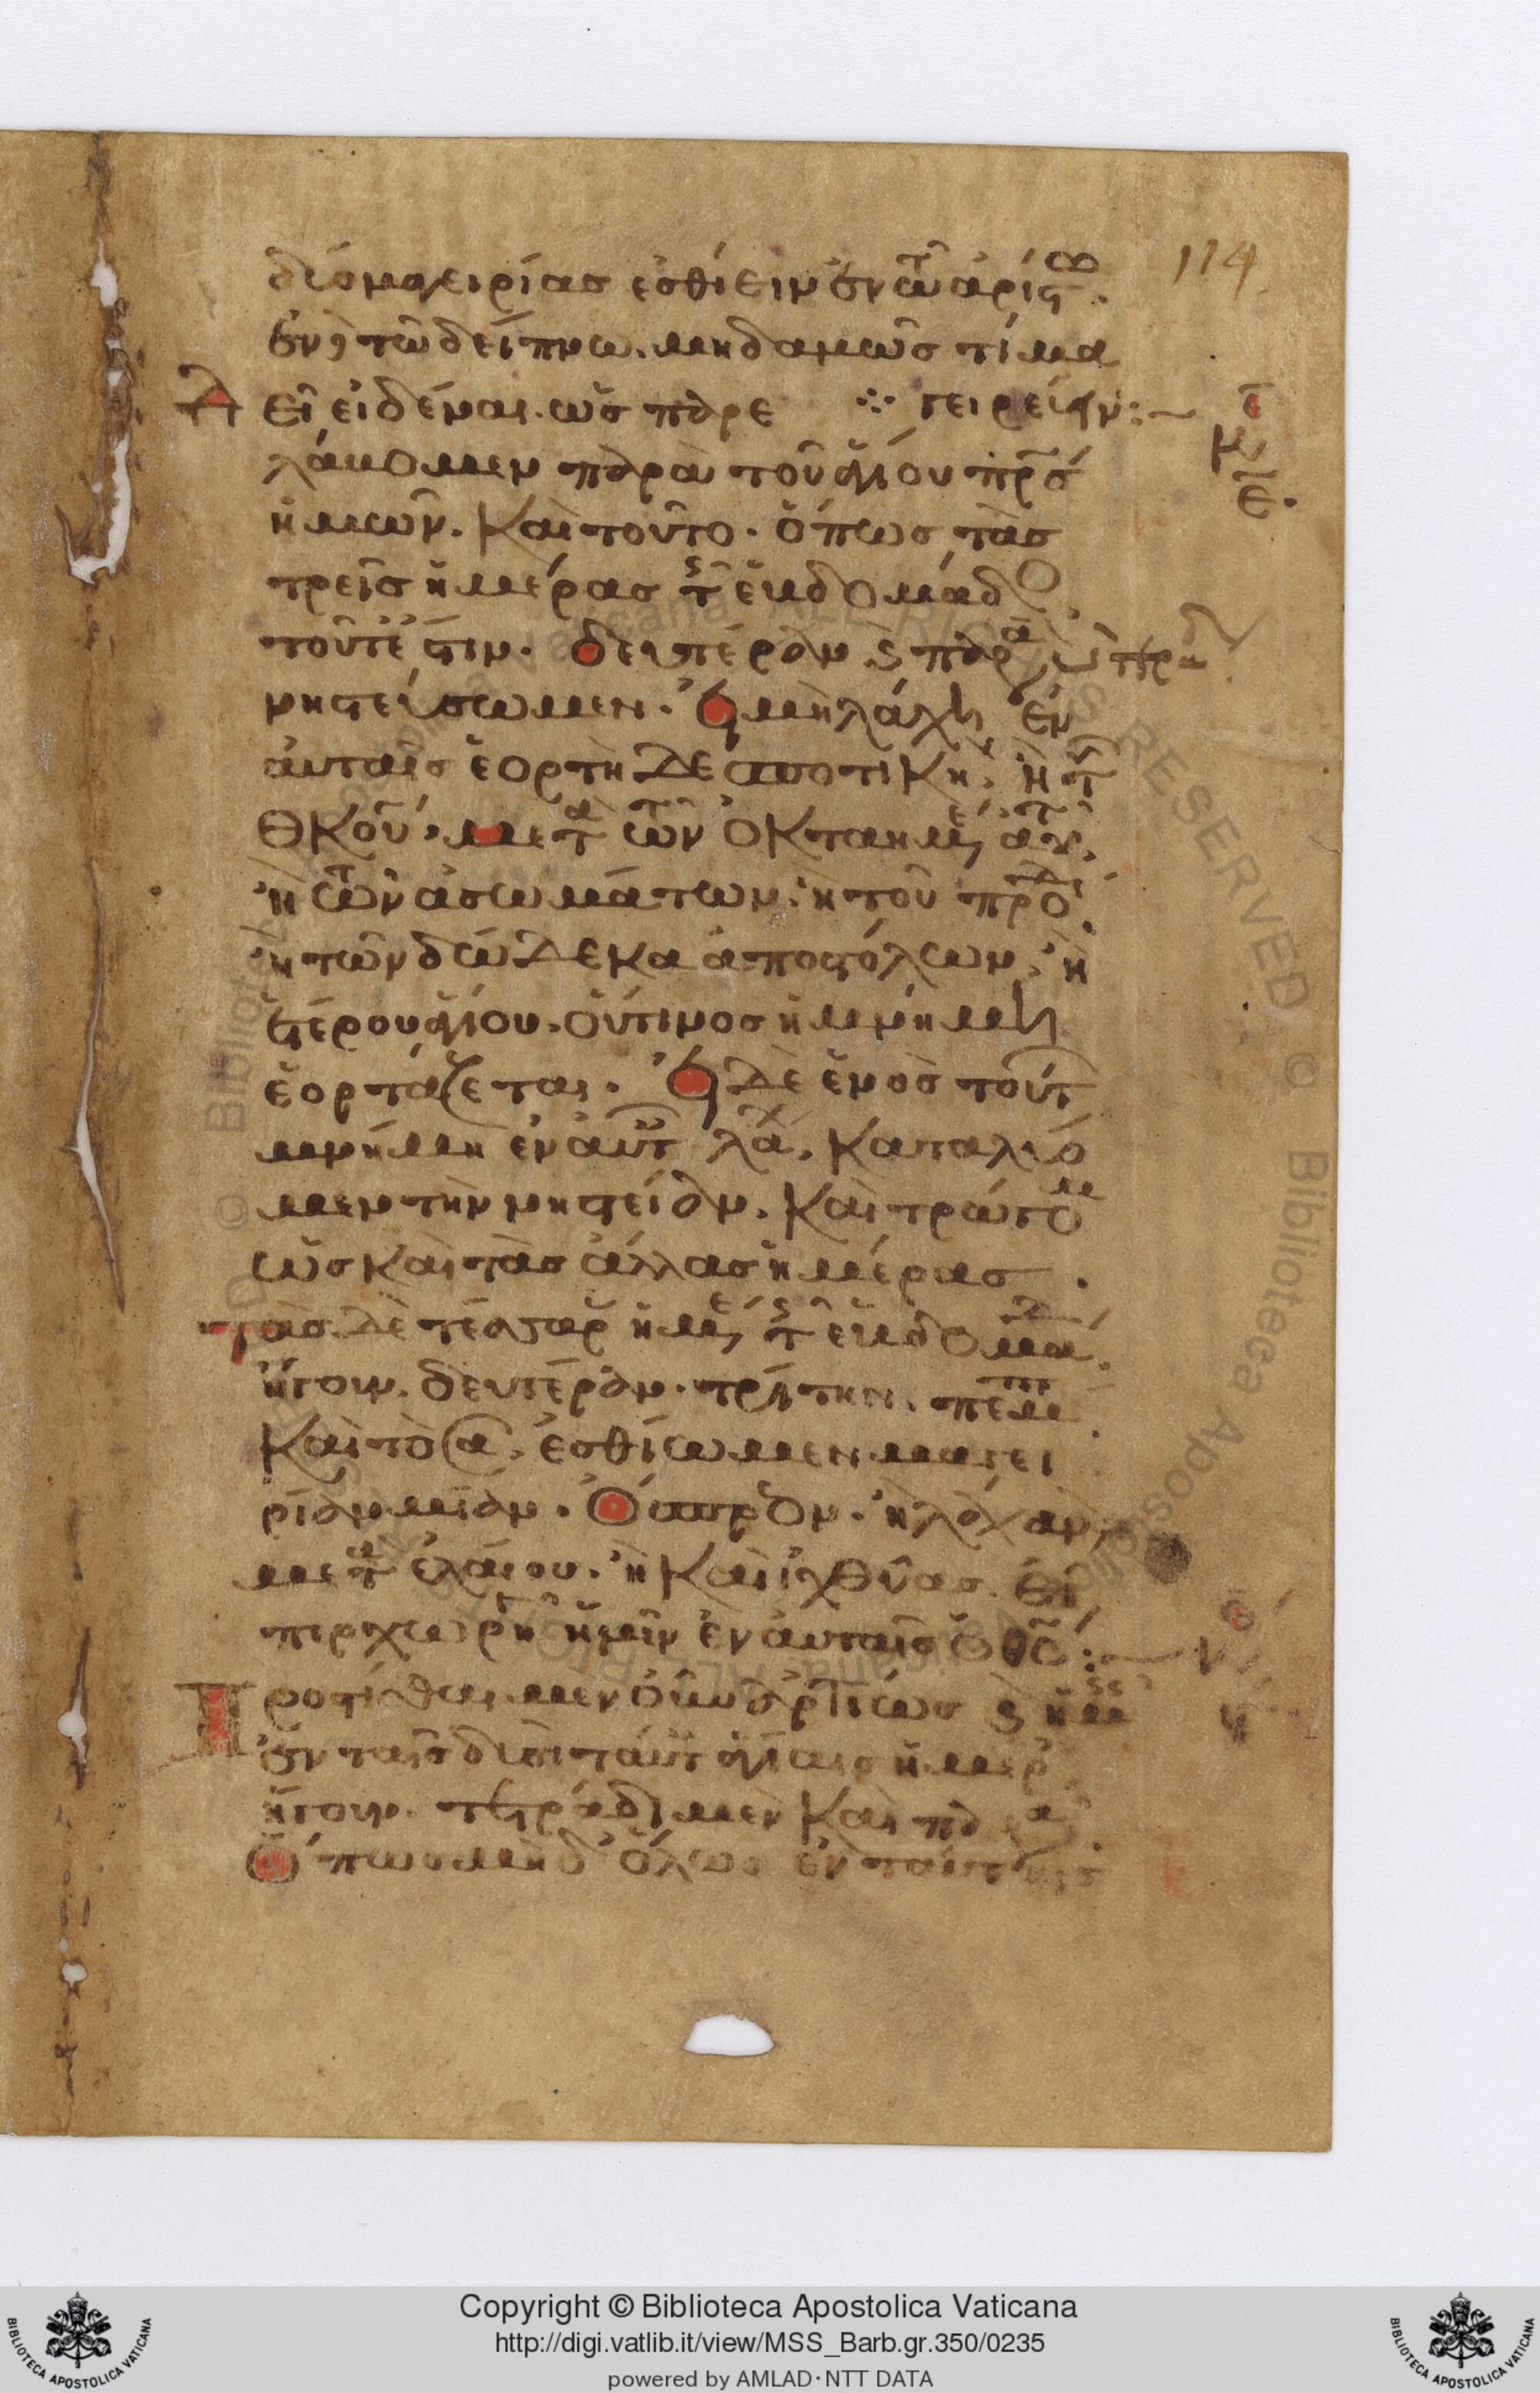 114
δύο μαγειρίας ἐσθίειν ἐν τῶ ἀρίστω.
ἐν δὲ τῶ δείπνω. μηδαμῶς τί μα
Δεῖ εἰδέναι. ὡς παρε ჻ γειρείαν:~
λάβομεν παρὰ τοῦ ἁγίου πρς
ἡμῶν. καὶ τοῦτο. ὅπως τὰς
τρεῖς ἡμέρας τς ἑβδομάδο
τουτέστιν. δευτέραν, καὶ
νηστεύσωμεν. εἰ μὴ λάχη ἐν
αὐταῖς ἑορτὴ δεσποτικὴ. ἢ τς
Θκου. μετὰ τῶν ὀκταημέ αὐτ.
ἢ τῶν ἀσωμάτων. ἢ τοῦ προδ
ἢ τῶν δώδεκα ἀποστόλων. ἢ
ἑτέρου ἁγίου. οὕτινος ἡ μνήμη
ἑορτάζεται. εἰ δὲ ἑνὸς τούτ
μνήμη ἐν αὐτ λάχ. καταλύο
μεν τὴν νηστείαν. καὶ τρώγομ
ὡς καὶ τὰς ἄλλας ἡμέρας.
τὰς δὲ τέσσαρ ἡμέ τς ἑβδομάδ.
ἤγουν. δευτέραν. τρίτην. πέμπ
καὶ τὸ σα. ἐσθίωμεν μαγει
ρίαν μίαν. ὄσπριον. ἢ λάχανον
μετὰ ἐλαίου. ἢ καὶ ἰχθύας. εἰ
περχωρὴ ἡμῖν ἐν αὐταῖς ὁ Θς:~
Προστίθεμεν οὖν ἀρτίως καὶ ἡμ
ἐν ταῖς δυσὶ ταύτ ἁγίαις ἡμέρ
ἤγουν. τετράδι μὲν καὶ πα
Ὅπως μηδ' ὅλως ἐν ταύταις
Copyright © Biblioteca Apostolica Vaticana
http://digi.vatlib.it/view/MSS_Barb.gr.350/0235
powered by AMLAD·NTT DATA
BIBLIOTECA APOSTOLICA VATICANA
BIBLIOTECA APOSTOLICA VATICANA